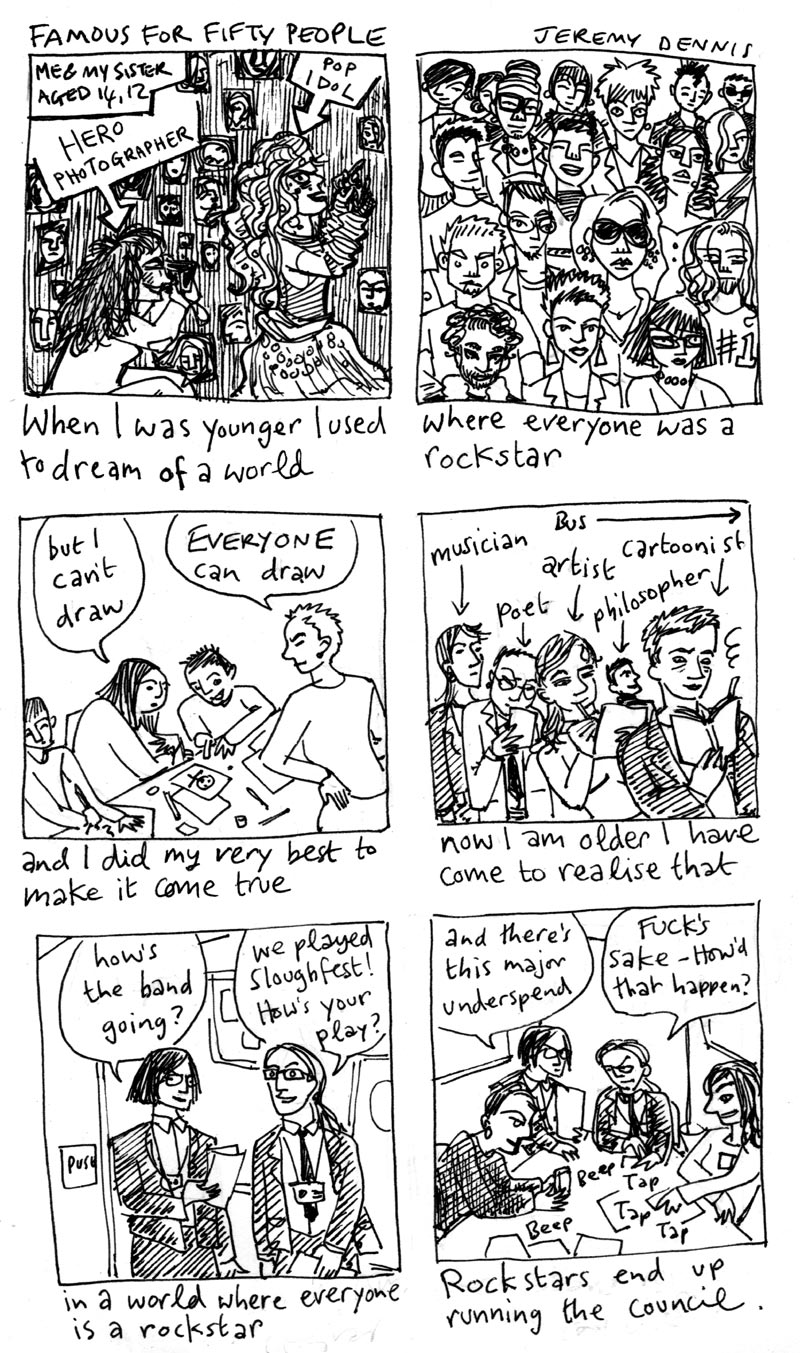 FAMOUS FOR FIFTY PEOPLE
JEREMY DENNIS
ME & MY SISTER
AGED 14, 12
POP
IDOL
HERO
PHOTOGRAPHER
When I was younger I used
to dream of a world
#1
where everyone was a
rockstar
but I
can't
draw
EVERYONE
can draw
and I did my very best to
make it come true
Bus
musician
poet
artist
philosopher
cartoonist
now I am older I have
come to realise that
how's
the band
going?
we played
Sloughfest!
How's your
play?
PUSH
in a world where everyone
is a rockstar
and there's
this major
underspend
FUCK'S
SAKE - How'd
that happen?
Beep
Beep
Tap
Tap
Tap
Rockstars end up
running the council.